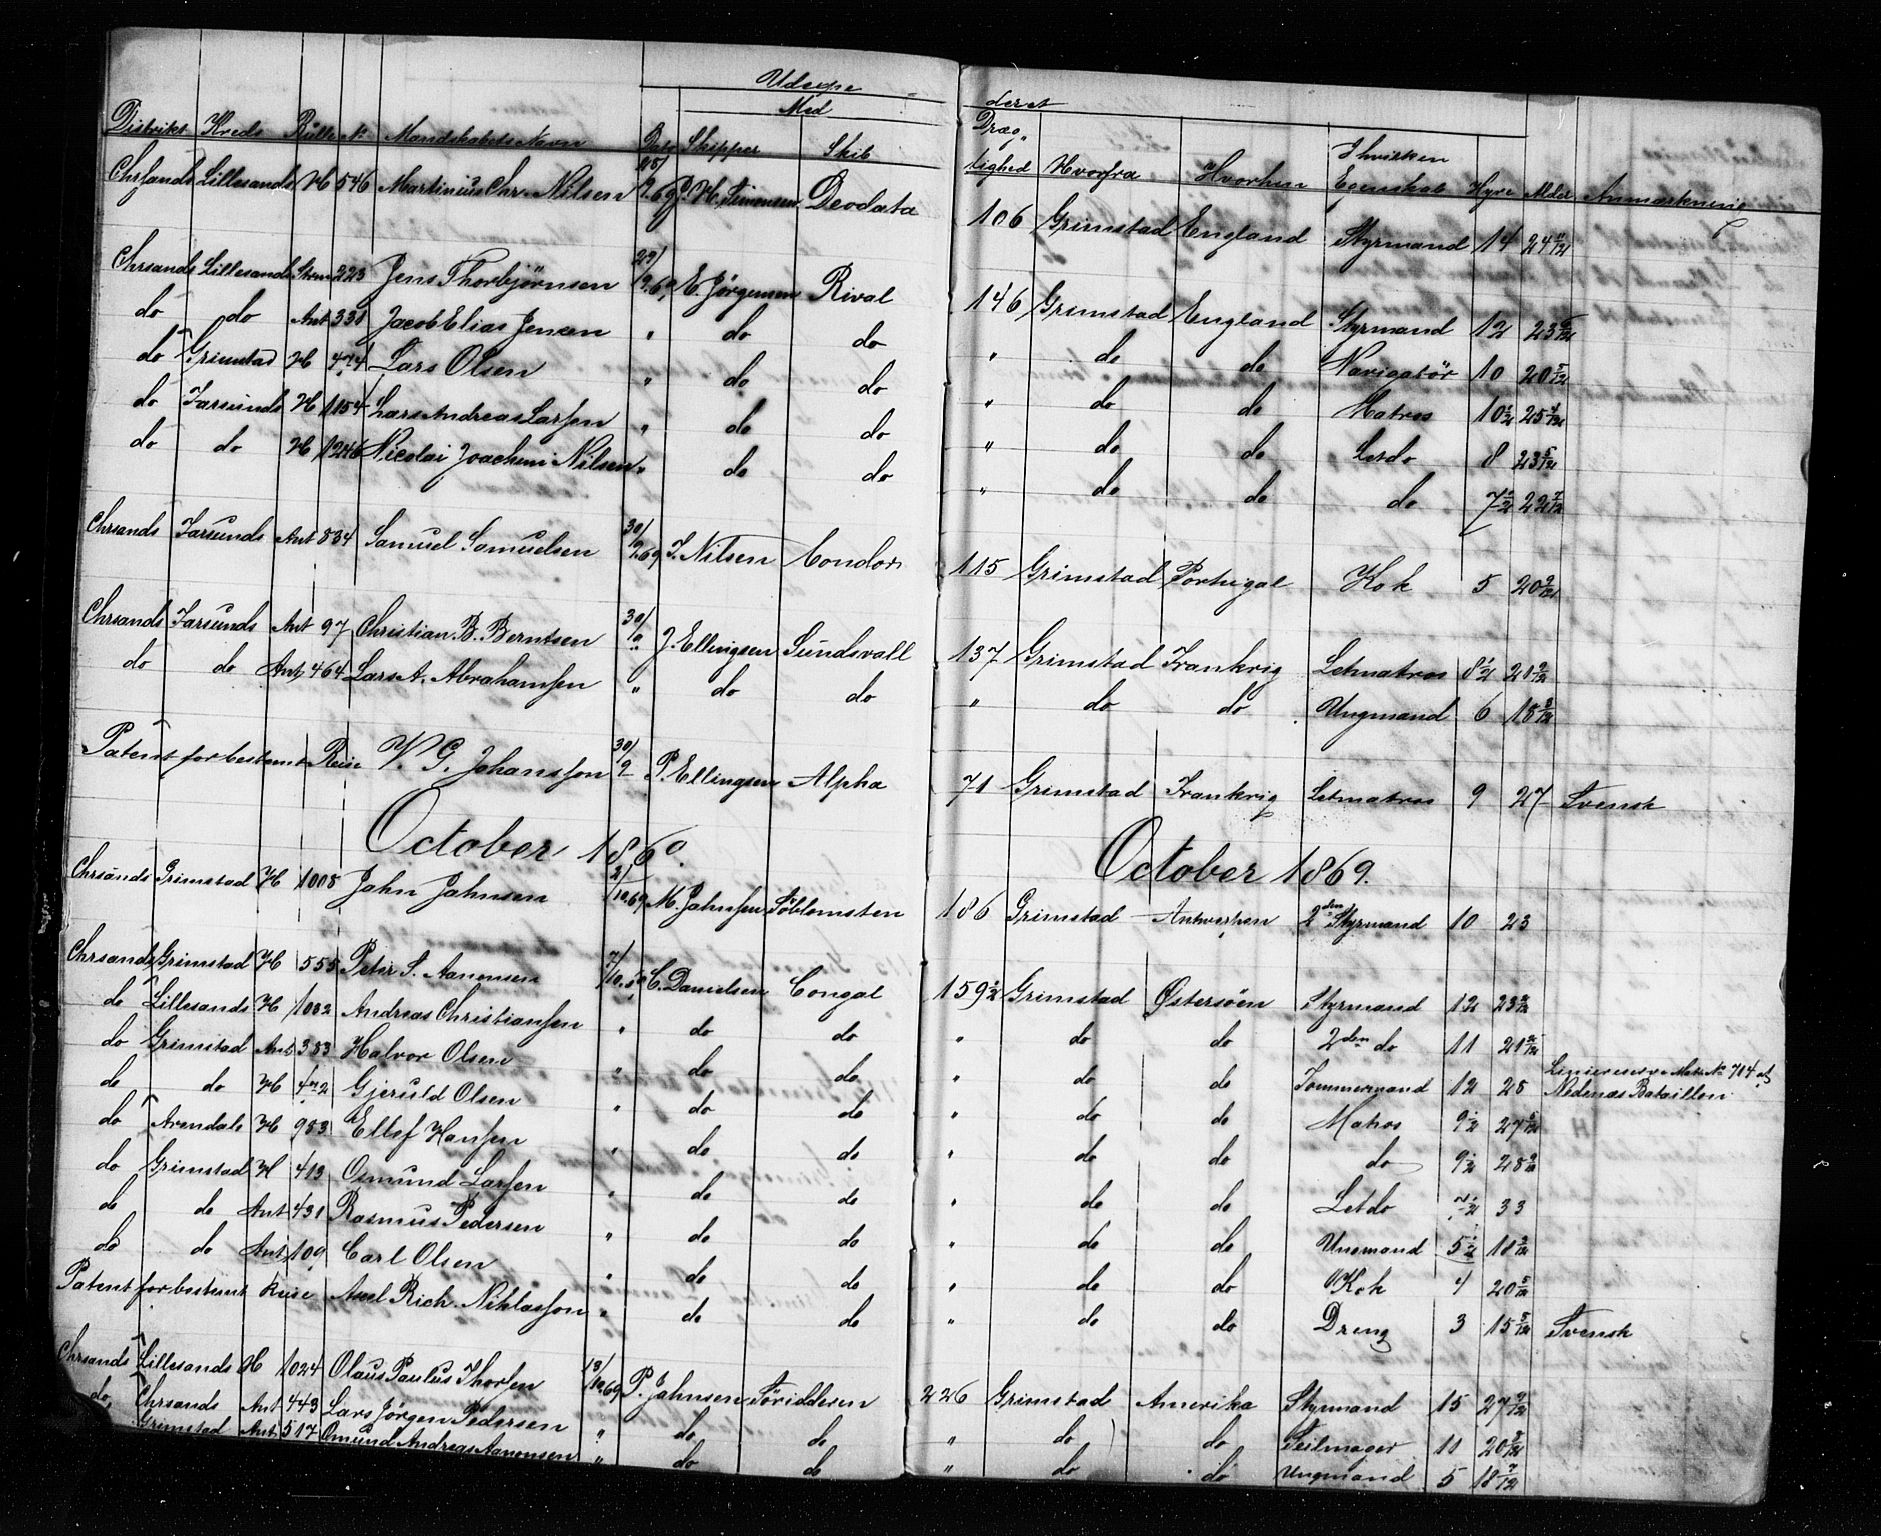 Udseglet Med
Distrikt Kreds Rulle No Mandskabets Navn Dato Skipper Skib
Drægtighed Hvorfra Hvorhen I hvilken Egenskab Hyre Alder Anmærkning
Chrsands Lillesands H 546 Martinius Chr. Nilsen 9.69 P. H. Simonsen Deodata 106 Grimstad England Styrmand 14 24 11/12
Chrsands Lillesands 223 Jens Thorbjörnsen 29/9.69 E. Jörgensen Rival 146 Grimstad England Styrmand 12 23
do do Ant 331 Jacob Elias Jensen " do do " do do Navigatör 10 20
do Grimstad H 474 Lars Olsen " do do " do do Matros 10½ 25
do Farsunds H 1154 Lars Andreas Larsen " do do " do do Letdo 8 23 5/12
do do H 1246 Nicolai Joachim Nilsen " do do " do do do 7½ 22 7/12
Chrsands Farsunds Ant 834 Samuel Samuelsen 30/9.69 J. Nilsen Condor 115 Grimstad Portugal Kok 5 20
Chrsands Farsunds Ant 97 Christian B. Berntsen 30/9 J. Ellingsen Sundsvall 137 Grimstad Frankrig Letmatros 8½ 21
do do Ant 464 Lars A. Abrahamsen " do do " do do Ungmand 6 18
Patent for bestemt Reise V. G. Johansson 30/9 P. Ellingsen Alpha 71 Grimstad Frankrig Letmatros 9 27 Svensk
October 1869. October 1869.
Chrsands Grimstad H 1008 John Johnsen 2/10.69 M. Johnsen Söblomsten 186 Grimstad Antwerpen 2den Styrmand 10 23
Chrsands Grimstad H 555 Peter S. Aanonsen 7/10 C. Danielsen Congal 159½ Grimstad Östersöen Styrmand 12 23
do Lillesands H 1082 Andreas Christiansen " do do " do do 2den do 11 21
do Grimstad Ant 383 Halvor Olsen " do do " do do Tømmermand 12 28 Liniereserve Mats No 704 af Nedenæs Bataillon
do do H Gjeruld Olsen " do do " do do Matros 9½ 27
do Arendals H 983 Ellef Hansen " do do " do do do 9½ 28
do Grimstad H 413 Osmund Larsen " do do " do do Letdo 7½ 33
do do Ant 431 Rasmus Pedersen " do do " do do Ungmand 5½ 18
do do Ant 109 Carl Olsen " do do " do do Kok 4 20 5/12
Patent for bestemt Reise Axel Rich. Niklasson " do do " do do Dreng 3 15 Svensk
Chrsands Lillesands H 1024 Olaus Paulus Thorsen 13/10.69 P. Johnsen Söridderen 226 Grimstad Amerika Styrmand 15 27
do Chrsands Ant 443 Lars Jörgen Pedersen " do do " do do Seilmager 11 20
Grimstad Ant 517 Omund Andreas Aanonsen " do do " do do Ungmand 5 18 7/12